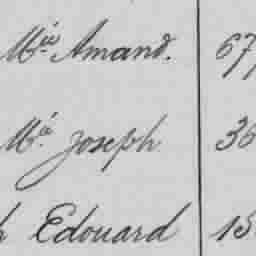 Mie Amand. 67
Mie Joseph 36
h Edouard 15